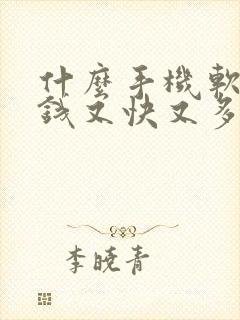 什麼手機軟
錢又快又多
李曉青